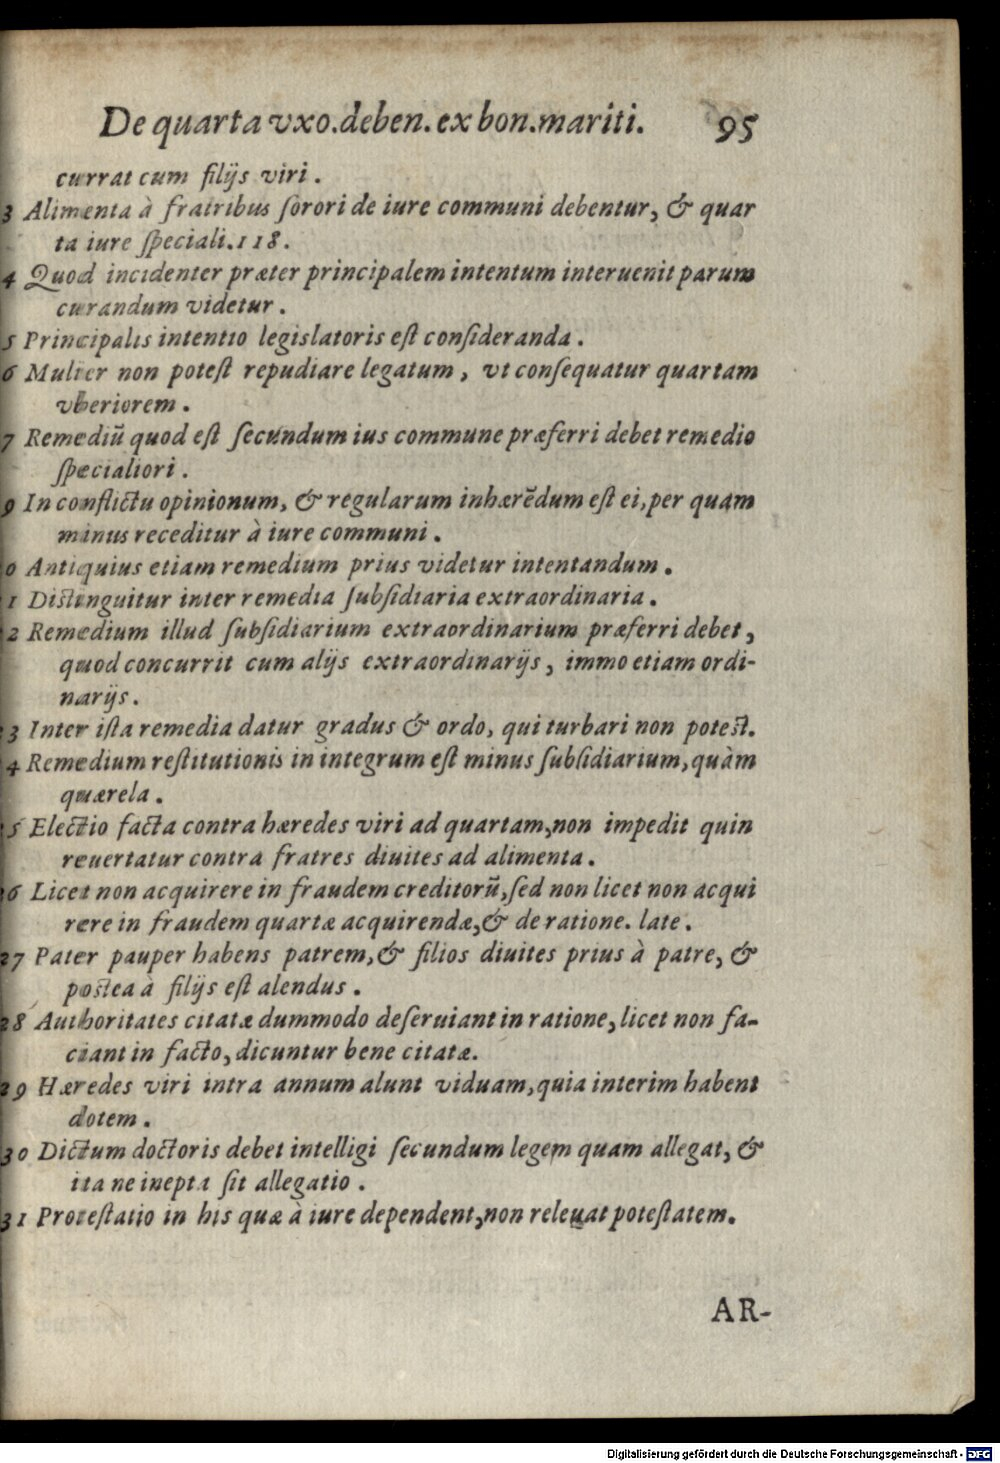 De quarta vxo.deben.ex bon.mariti. 95
currat cum filijs viri.
3 Alimenta à fratribus sorori de iure communi debentur, & quar
ta iure speciali.118.
4 Quod incidenter præter principalem intentum interuenit parum
curandum videtur.
5 Principalis intentio legislatoris est consideranda.
6 Mulier non potest repudiare legatum, vt consequatur quartam
vberiorem.
7 Remediū quod est secundum ius commune præferri debet remedio
specialiori.
9 In conflictu opinionum, & regularum inhærēdum est ei,per quam
minus receditur à iure communi.
0 Antiquius etiam remedium prius videtur intentandum.
1 Distinguitur inter remedia subsidiaria extraordinaria.
2 Remedium illud subsidiarium extraordinarium præferri debet,
quod concurrit cum alijs extraordinarijs, immo etiam ordi-
narijs.
3 Inter ista remedia datur gradus & ordo, qui turbari non potest.
4 Remedium restitutionis in integrum est minus subsidiarium,quàm
quærela.
5 Electio facta contra hæredes viri ad quartam,non impedit quin
reuertatur contra fratres diuites ad alimenta.
6 Licet non acquirere in fraudem creditorū,sed non licet non acqui
rere in fraudem quartæ acquirendæ,& de ratione. late.
27 Pater pauper habens patrem,& filios diuites prius à patre, &
postea à filijs est alendus.
28 Authoritates citatæ dummodo deseruiant in ratione,licet non fa-
ciant in facto,dicuntur bene citatæ.
29 Hæredes viri intra annum alunt viduam,quia interim habent
dotem.
30 Dictum doctoris debet intelligi secundum legem quam allegat, &
ita ne inepta sit allegatio.
31 Protestatio in his quæ à iure dependent,non releuat potestatem.
AR-
Digitalisierung gefördert durch die Deutsche Forschungsgemeinschaft - DFG